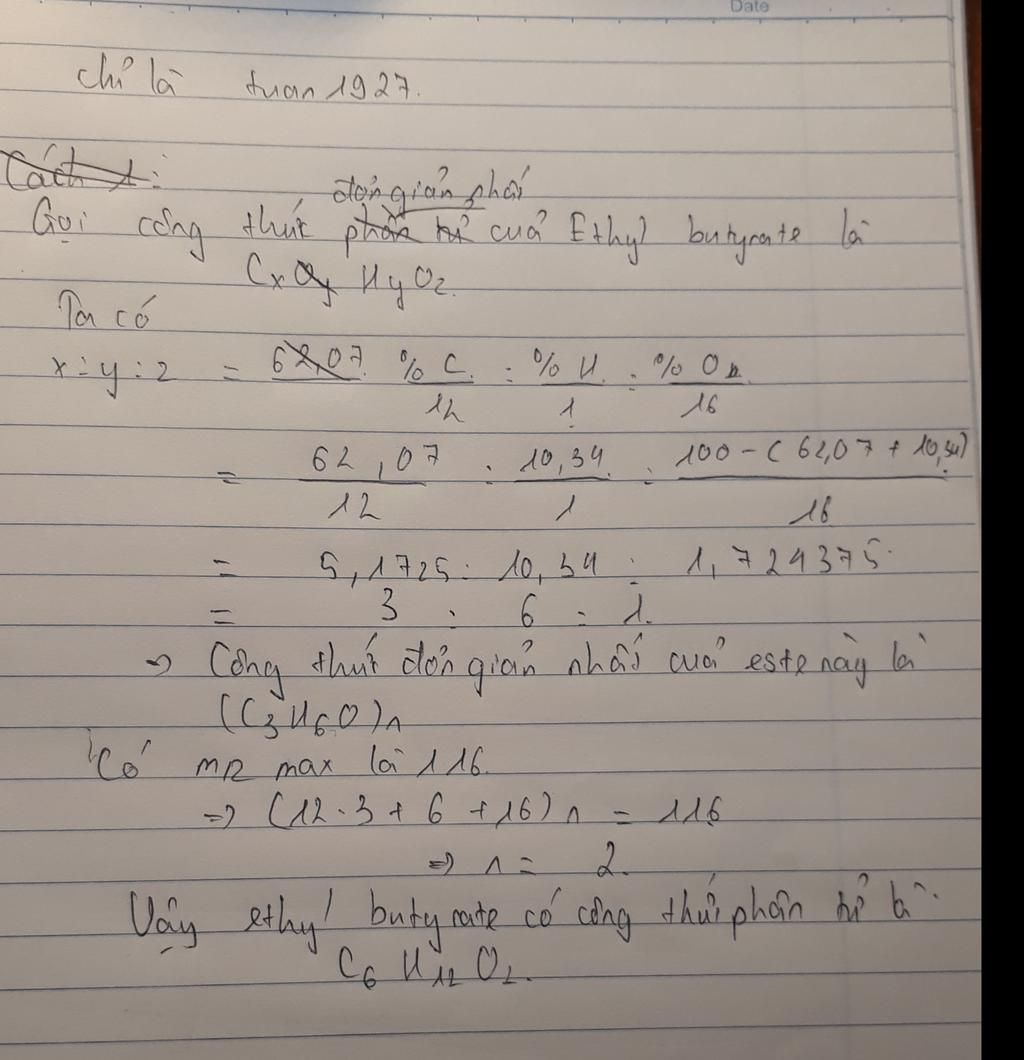 Date
chỉ là tuan1927.
Cách 1:
đơn giản nhất
Gọi công thức phân tử của Ethyl butyrate là
CxOy HyO2.
Ta có
x : y : z = 62,07 % C : % H : % O
12 1 16
= 62,07 : 10,34 : 100 - (62,07 + 10,34)
12 1 16
= 5,1725 : 10,34 : 1,724375
= 3 : 6 : 1.
=> Công thức đơn giản nhất của este này là
(C3H6O)n
Có max là 116.
=> (12.3 + 6 + 16) n = 116
=> n = 2.
Vậy ethyl butyrate có công thức phân tử là
C6 H12 O2.